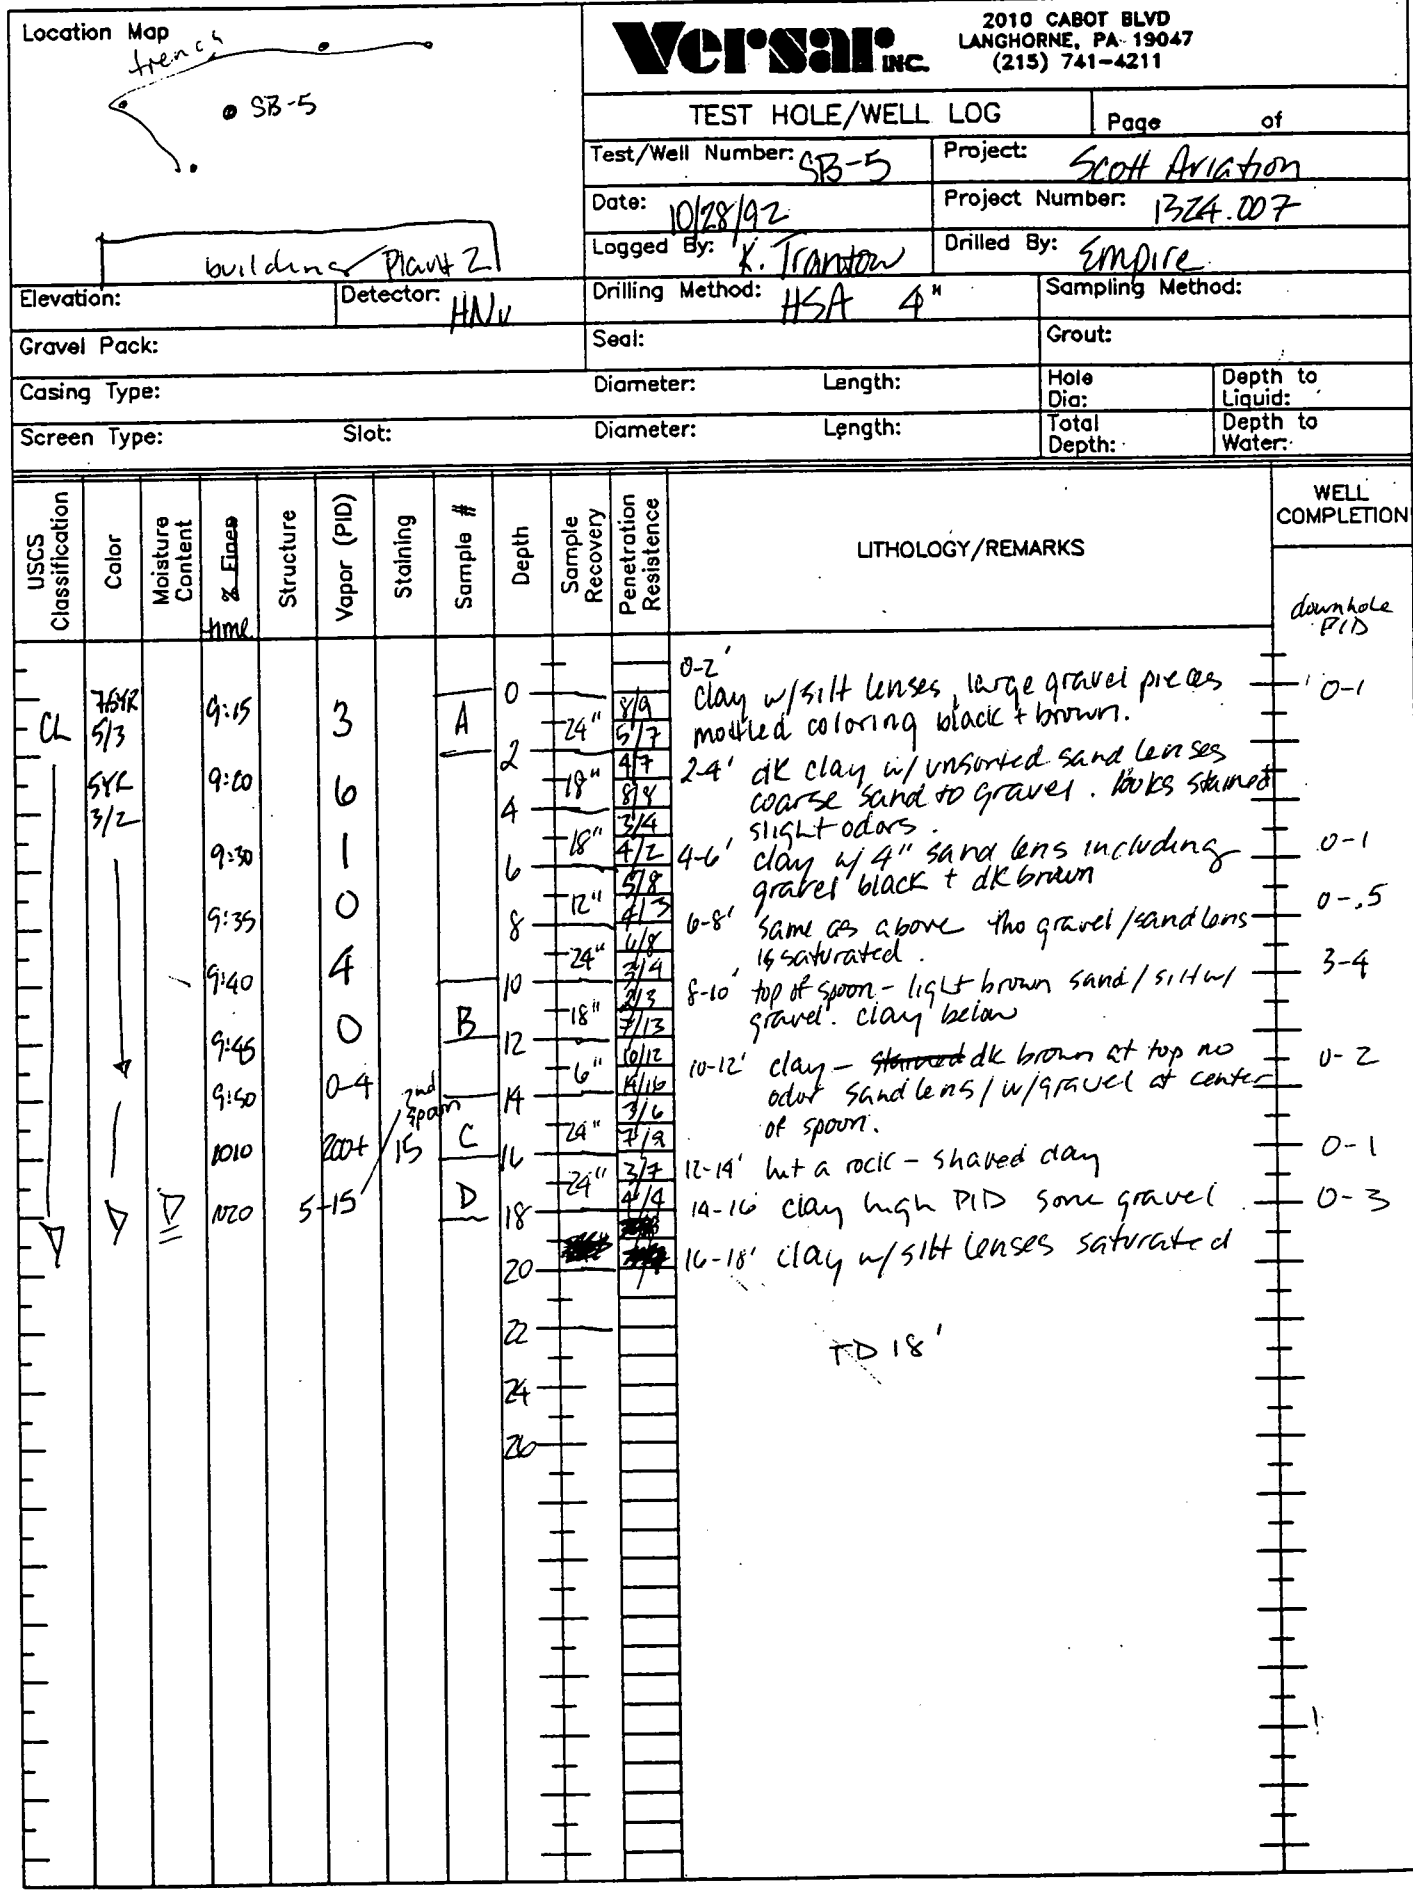 Location Map
trench
SB-5
building Plant 2
Versar INC.
2010 CABOT BLVD
LANGHORNE, PA 19047
(215) 741-4211
TEST HOLE/WELL LOG
Page of
Test/Well Number: SB-5
Project: Scott Aviation
Date: 10/28/92
Project Number: 1324.007
Logged By: K. Trantow
Drilled By: Empire
Elevation:
Detector: HNu
Drilling Method: HSA 4"
Sampling Method:
Gravel Pack:
Seal:
Grout:
Casing Type:
Diameter:
Length:
Hole Dia:
Depth to Liquid:
Screen Type:
Slot:
Diameter:
Length:
Total Depth:
Depth to Water:
USCS Classification
Color
Moisture Content
% Fines
time
Structure
Vapor (PID)
Staining
Sample #
Depth
Sample Recovery
Penetration Resistence
LITHOLOGY/REMARKS
WELL COMPLETION
downhole PID
CL
7.5YR
5/3
5YR
3/2
9:15
9:20
9:30
9:35
9:40
9:45
9:50
1010
1020
3
6
1
0
4
0
0-4
200+
5-15
2nd spoon
15
A
B
C
D
0
2
4
6
8
10
12
14
16
18
20
22
24
26
24"
18"
18"
12"
24"
18"
6"
24"
24"
8/9
5/7
4/7
8/8
3/4
4/2
5/8
4/3
6/8
3/4
2/3
7/13
10/12
14/16
3/6
7/9
3/7
4/4
0-2'
clay w/silt lenses, large gravel pieces
mottled coloring black + brown.
2-4' dk clay w/ unsorted sand lenses
coarse sand to gravel. looks stained
slight odors.
4-6' clay w/ 4" sand lens including
gravel black + dk brown
6-8' same as above tho gravel/sand lens
is saturated.
8-10' top of spoon - light brown sand/silt w/
gravel. clay below
10-12' clay - stained dk brown at top no
odor sand lens/w/gravel at center
of spoon.
12-14' hit a rock - shaved clay
14-16 clay high PID some gravel
16-18' clay w/silt lenses saturated
TD 18'
0-1
0-1
0-.5
3-4
0-2
0-1
0-3